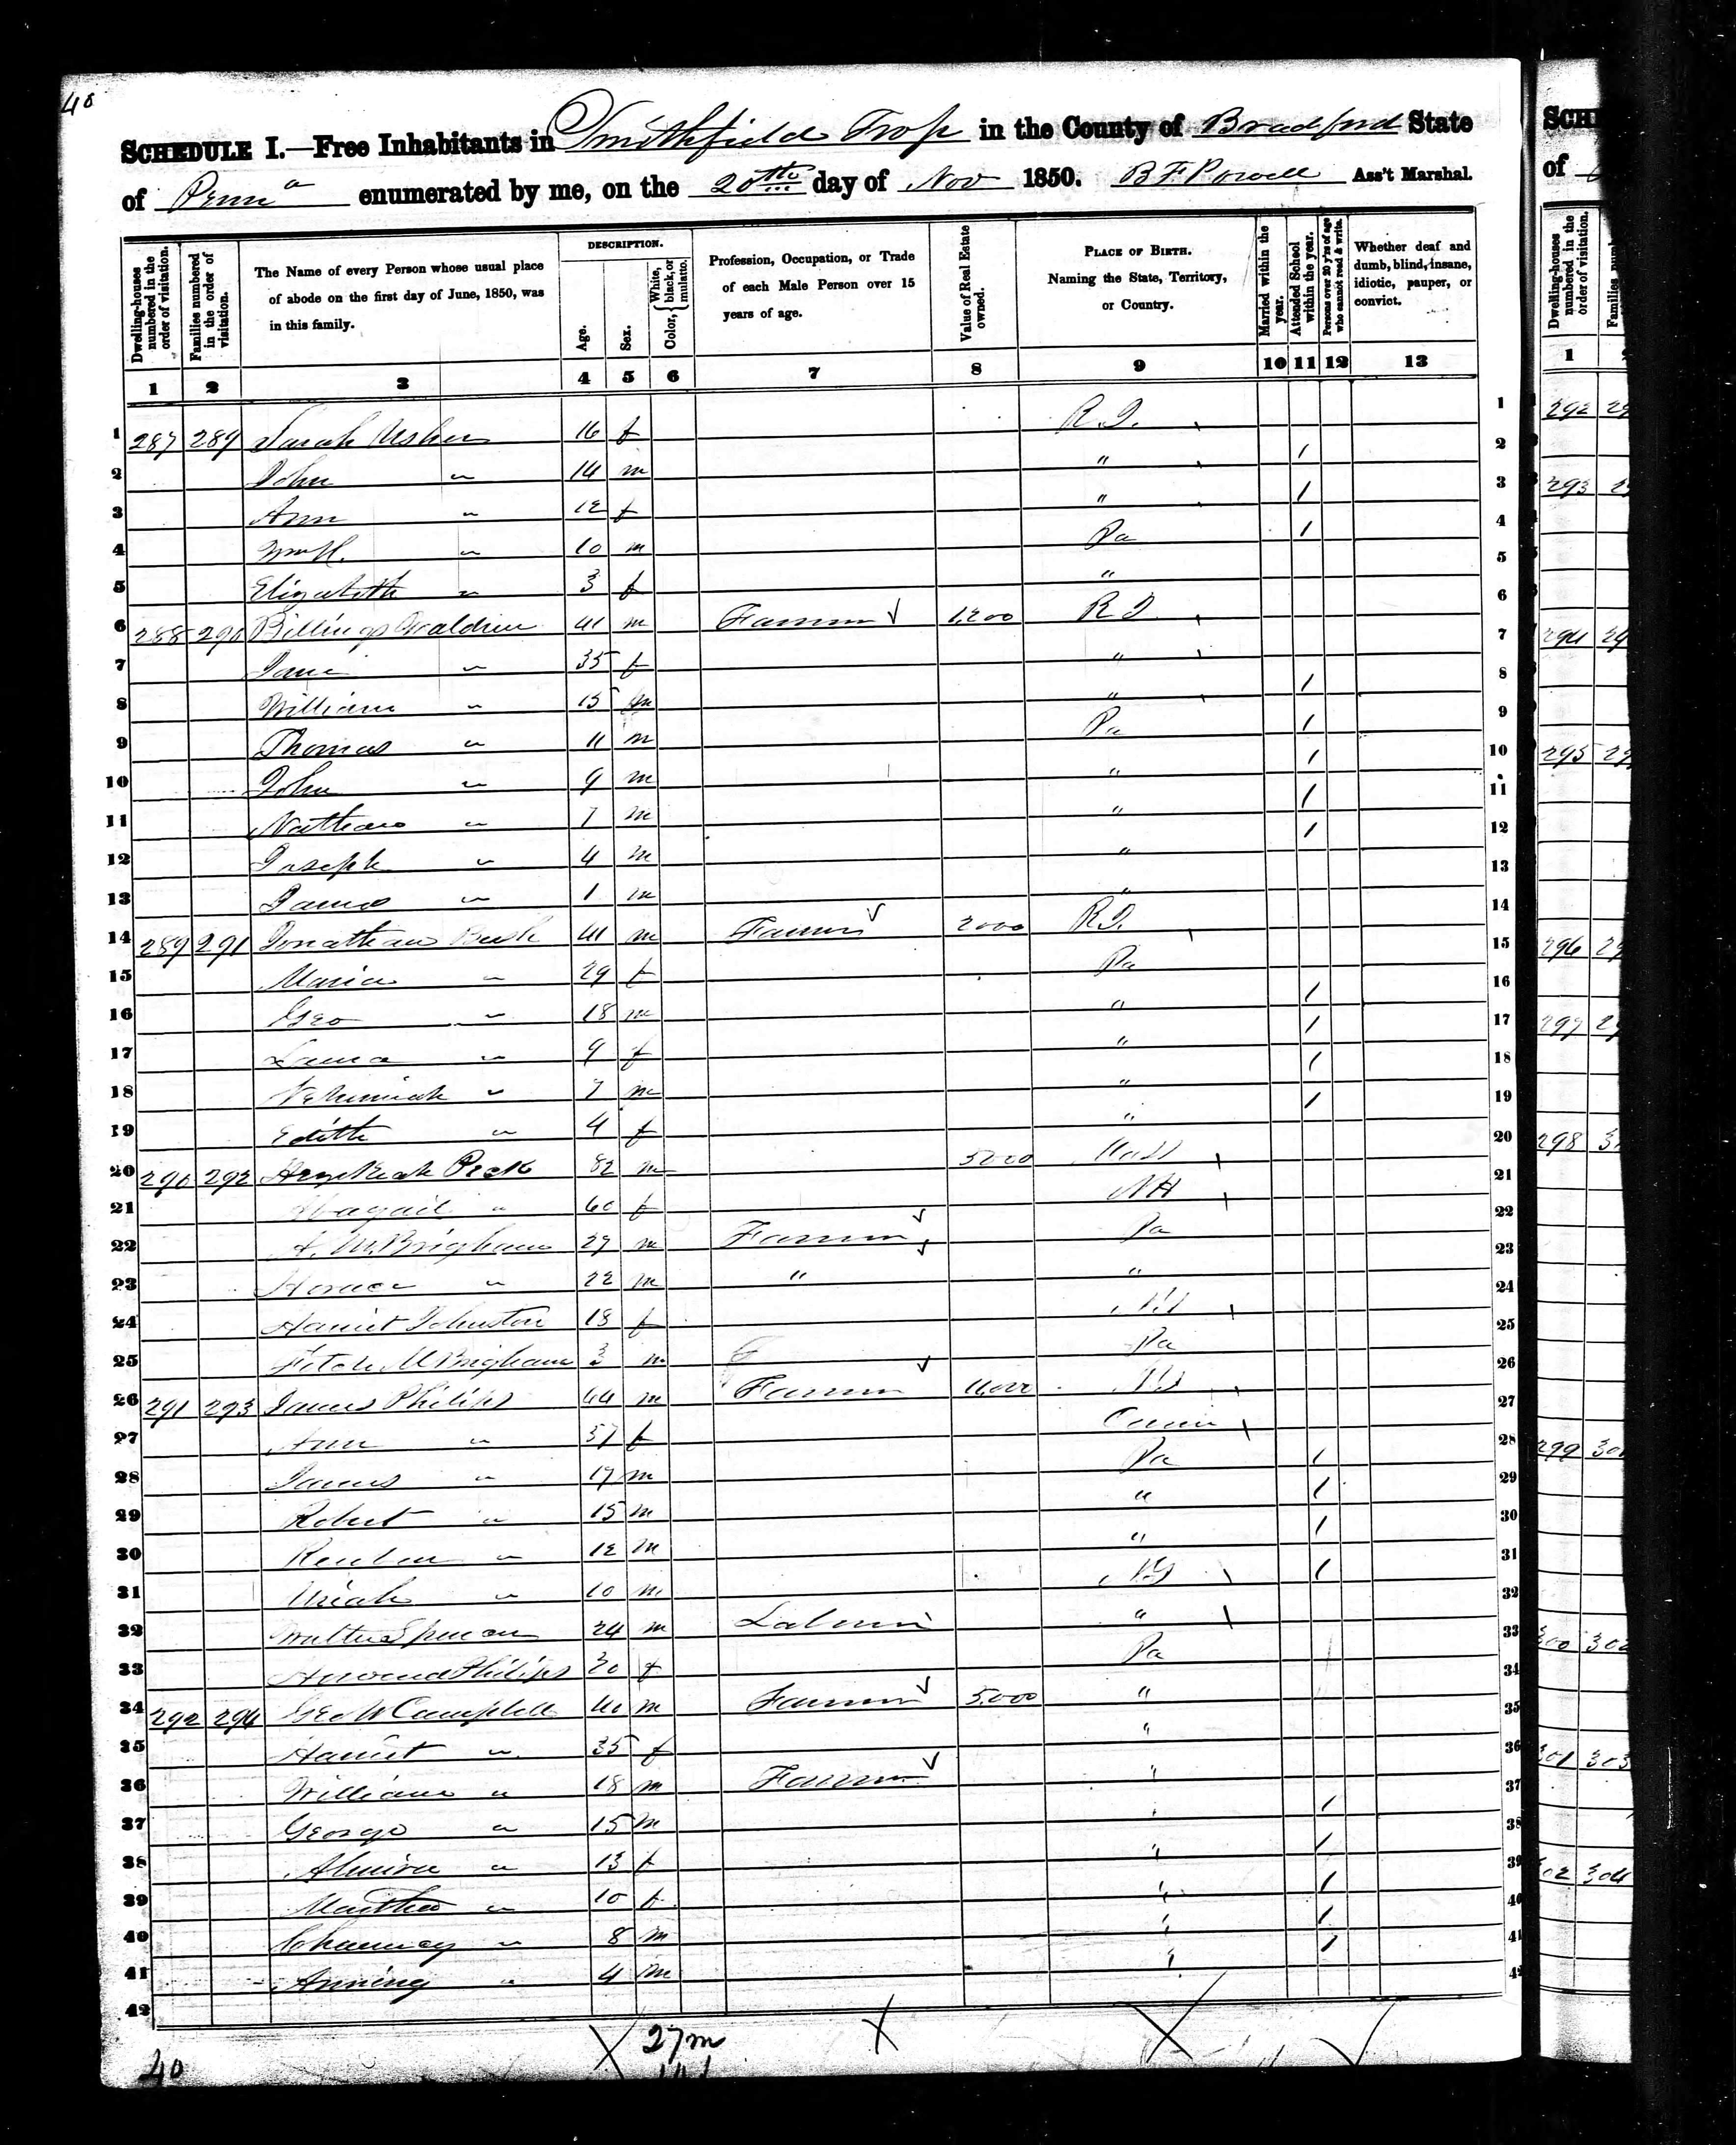 40
SCHEDULE I.—Free Inhabitants in Smithfield Twp in the County of Bradford State
of Penna enumerated by me, on the 20th day of Nov 1850. B F Powell Ass't Marshal.
Dwelling-houses numbered in the order of visitation.
Families numbered in the order of visitation.
The Name of every Person whose usual place of abode on the first day of June, 1850, was in this family.
DESCRIPTION.
Age.
Sex.
Color, { White, black, or mulatto.
Profession, Occupation, or Trade of each Male Person over 15 years of age.
Value of Real Estate owned.
PLACE OF BIRTH. Naming the State, Territory, or Country.
Married within the year.
Attended School within the year.
Persons over 20 y'rs of age who cannot read & write.
Whether deaf and dumb, blind, insane, idiotic, pauper, or convict.
1 2 3 4 5 6 7 8 9 10 11 12 13
1 287 289 Sarah Usher 16 f R.I. 1
2 John " 14 m " 1 2
3 Ann " 12 f " 1 3
4 Wm H. " 10 m Pa 1 4
5 Elizabeth " 3 f " 5
6 288 290 Billings Waldren 41 m Farmer 1,200 R I 6
7 Jane " 35 f " 7
8 William " 15 m " 1 8
9 Thomas " 11 m Pa 1 9
10 John " 9 m " 1 10
11 Nathan " 7 m " 1 11
12 Joseph " 4 m " 1 12
13 James " 1 m " 13
14 289 291 Jonathan Bush 41 m Farmer 2000 R I. 14
15 Maria " 29 f Pa 15
16 Geo " 18 m " 1 16
17 Laura " 9 f " 1 17
18 Nehemiah " 7 m " 1 18
19 Edith " 4 f " 1 19
20 290 292 Hezekiah Peck 82 m 5000 Mass 20
21 Abagail " 60 f NH 21
22 Brigham 27 m Farmer Pa 22
23 Horace " 22 m " " 23
24 Harriet Johnston 18 f NY 24
25 Fitch M Brigham 3 m Pa 25
26 291 293 James Philips 44 m Farmer NY 26
27 Ann " 37 f Conn 27
28 James " 17 m Pa 1 28
29 Robert " 15 m " 1 29
30 Reuben " 12 m " 1 30
31 Uriah " 10 m NY 1 31
32 Walter Spencer 24 m Laborer " 32
33 Philips 20 f Pa 33
34 292 294 Geo W Campbell 40 m Farmer 5,000 " 34
35 Harriet " 35 f " 35
36 William " 18 m Farmer " 36
37 George " 15 m " 1 37
38 Almira " 13 f " 1 38
39 Martha " 10 f " 1 39
40 Chauncey " 8 m " 1 40
41 Anning " 4 m " 1 41
42
27 m
40
SCH
of
Dwelling-houses numbered in the order of visitation.
1
292
293
294
295
296
297
298
299
300 302
301 303
302 304